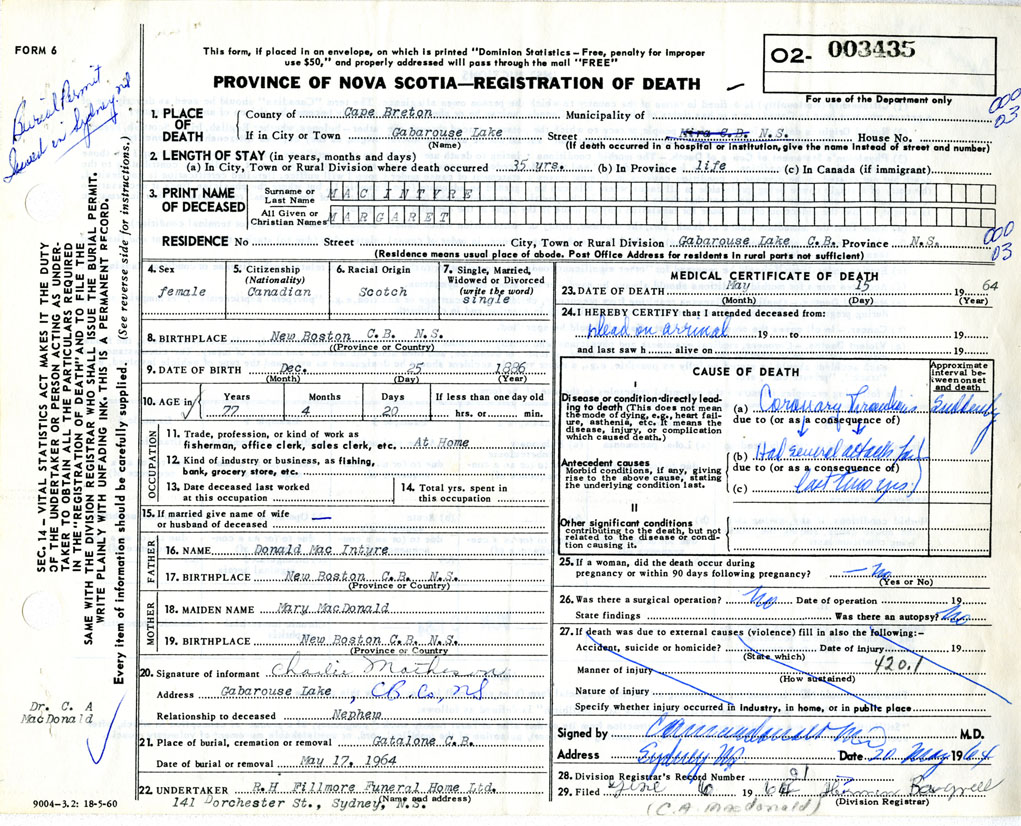 FORM 6
This form, if placed in an envelope, on which is printed "Dominion Statistics – Free, penalty for improper
use $50," and properly addressed will pass through the mail "FREE"
O2- 003435
For use of the Department only
PROVINCE OF NOVA SCOTIA—REGISTRATION OF DEATH
000
03
Burial Permit
issued in Sydney NS
1. PLACE OF DEATH
County of Cape Breton Municipality of
If in City or Town Gabarouse Lake Street Mira C.B. N.S. House No.
(Name) (If death occurred in a hospital or institution, give the name instead of street and number)
2. LENGTH OF STAY (in years, months and days)
(a) In City, Town or Rural Division where death occurred 35 yrs. (b) In Province life (c) In Canada (if immigrant)
3. PRINT NAME OF DECEASED
Surname or Last Name MAC INTYRE
All Given or Christian Names MARGARET
000
03
RESIDENCE No Street City, Town or Rural Division Gabarouse Lake C.B. Province N.S.
(Residence means usual place of abode. Post Office Address for residents in rural parts not sufficient)
4. Sex female
5. Citizenship (Nationality) Canadian
6. Racial Origin Scotch
7. Single, Married, Widowed or Divorced (write the word) single
8. BIRTHPLACE New Boston C.B. N.S.
(Province or Country)
9. DATE OF BIRTH Dec. 25 1886
(Month) (Day) (Year)
10. AGE in Years 77 Months 4 Days 20 If less than one day old hrs. or min.
OCCUPATION
11. Trade, profession, or kind of work as fisherman, office clerk, sales clerk, etc. At Home
12. Kind of industry or business, as fishing, bank, grocery store, etc.
13. Date deceased last worked at this occupation
14. Total yrs. spent in this occupation
15. If married give name of wife or husband of deceased —
FATHER
16. NAME Donald Mac Intyre
17. BIRTHPLACE New Boston C.B. N.S.
(Province or Country)
MOTHER
18. MAIDEN NAME Mary MacDonald
19. BIRTHPLACE New Boston C.B. N.S.
(Province or Country
20. Signature of informant Charlie Matheson
Address Gabarouse Lake CB. Co, NS
Relationship to deceased Nephew
21. Place of burial, cremation or removal Gatalone C.B.
Date of burial or removal May 17, 1964
22. UNDERTAKER R.H Fillmore Funeral Home Ltd.
(Name and address)
141 Dorchester St., Sydney, N.S.
MEDICAL CERTIFICATE OF DEATH
23. DATE OF DEATH May 15 1964
(Month) (Day) (Year)
24. I HEREBY CERTIFY that I attended deceased from:
Dead on arrival 19 to 19
and last saw h alive on 19
CAUSE OF DEATH
Approximate interval between onset and death
I
Disease or condition directly leading to death (This does not mean the mode of dying, e.g., heart failure, asthenia, etc. It means the disease, injury, or complication which caused death.)
(a) Coronary Suddenly
due to (or as a consequence of)
Antecedent causes
Morbid conditions, if any, giving rise to the above cause, stating the underlying condition last.
(b) Had several attacks for
due to (or as a consequence of)
(c) last two yrs.)
II
Other significant conditions
contributing to the death, but not related to the disease or condition causing it.
25. If a woman, did the death occur during pregnancy or within 90 days following pregnancy? — No
(Yes or No)
26. Was there a surgical operation? No Date of operation 19
State findings Was there an autopsy? No
27. If death was due to external causes (violence) fill in also the following:–
Accident, suicide or homicide? Date of injury 19
(State which)
420.1
Manner of injury
(How sustained)
Nature of injury
Specify whether injury occurred in industry, in home, or in public place
Signed by M.D.
Address Sydney NS Date 20 May 1964
28. Division Registrar's Record Number 91
29. Filed June 6 1964
(Division Registrar)
(C.A. Macdonald)
SEC. 14 – VITAL STATISTICS ACT MAKES IT THE DUTY
OF THE UNDERTAKER OR PERSON ACTING AS UNDER-
TAKER TO OBTAIN ALL THE PARTICULARS REQUIRED
IN THE "REGISTRATION OF DEATH" AND TO FILE THE
SAME WITH THE DIVISION REGISTRAR WHO SHALL ISSUE THE BURIAL PERMIT.
WRITE PLAINLY WITH UNFADING INK. THIS IS A PERMANENT RECORD.
Every item of information should be carefully supplied. (See reverse side for instructions.)
Dr. C. A
MacDonald
9004–3.2: 18-5-60